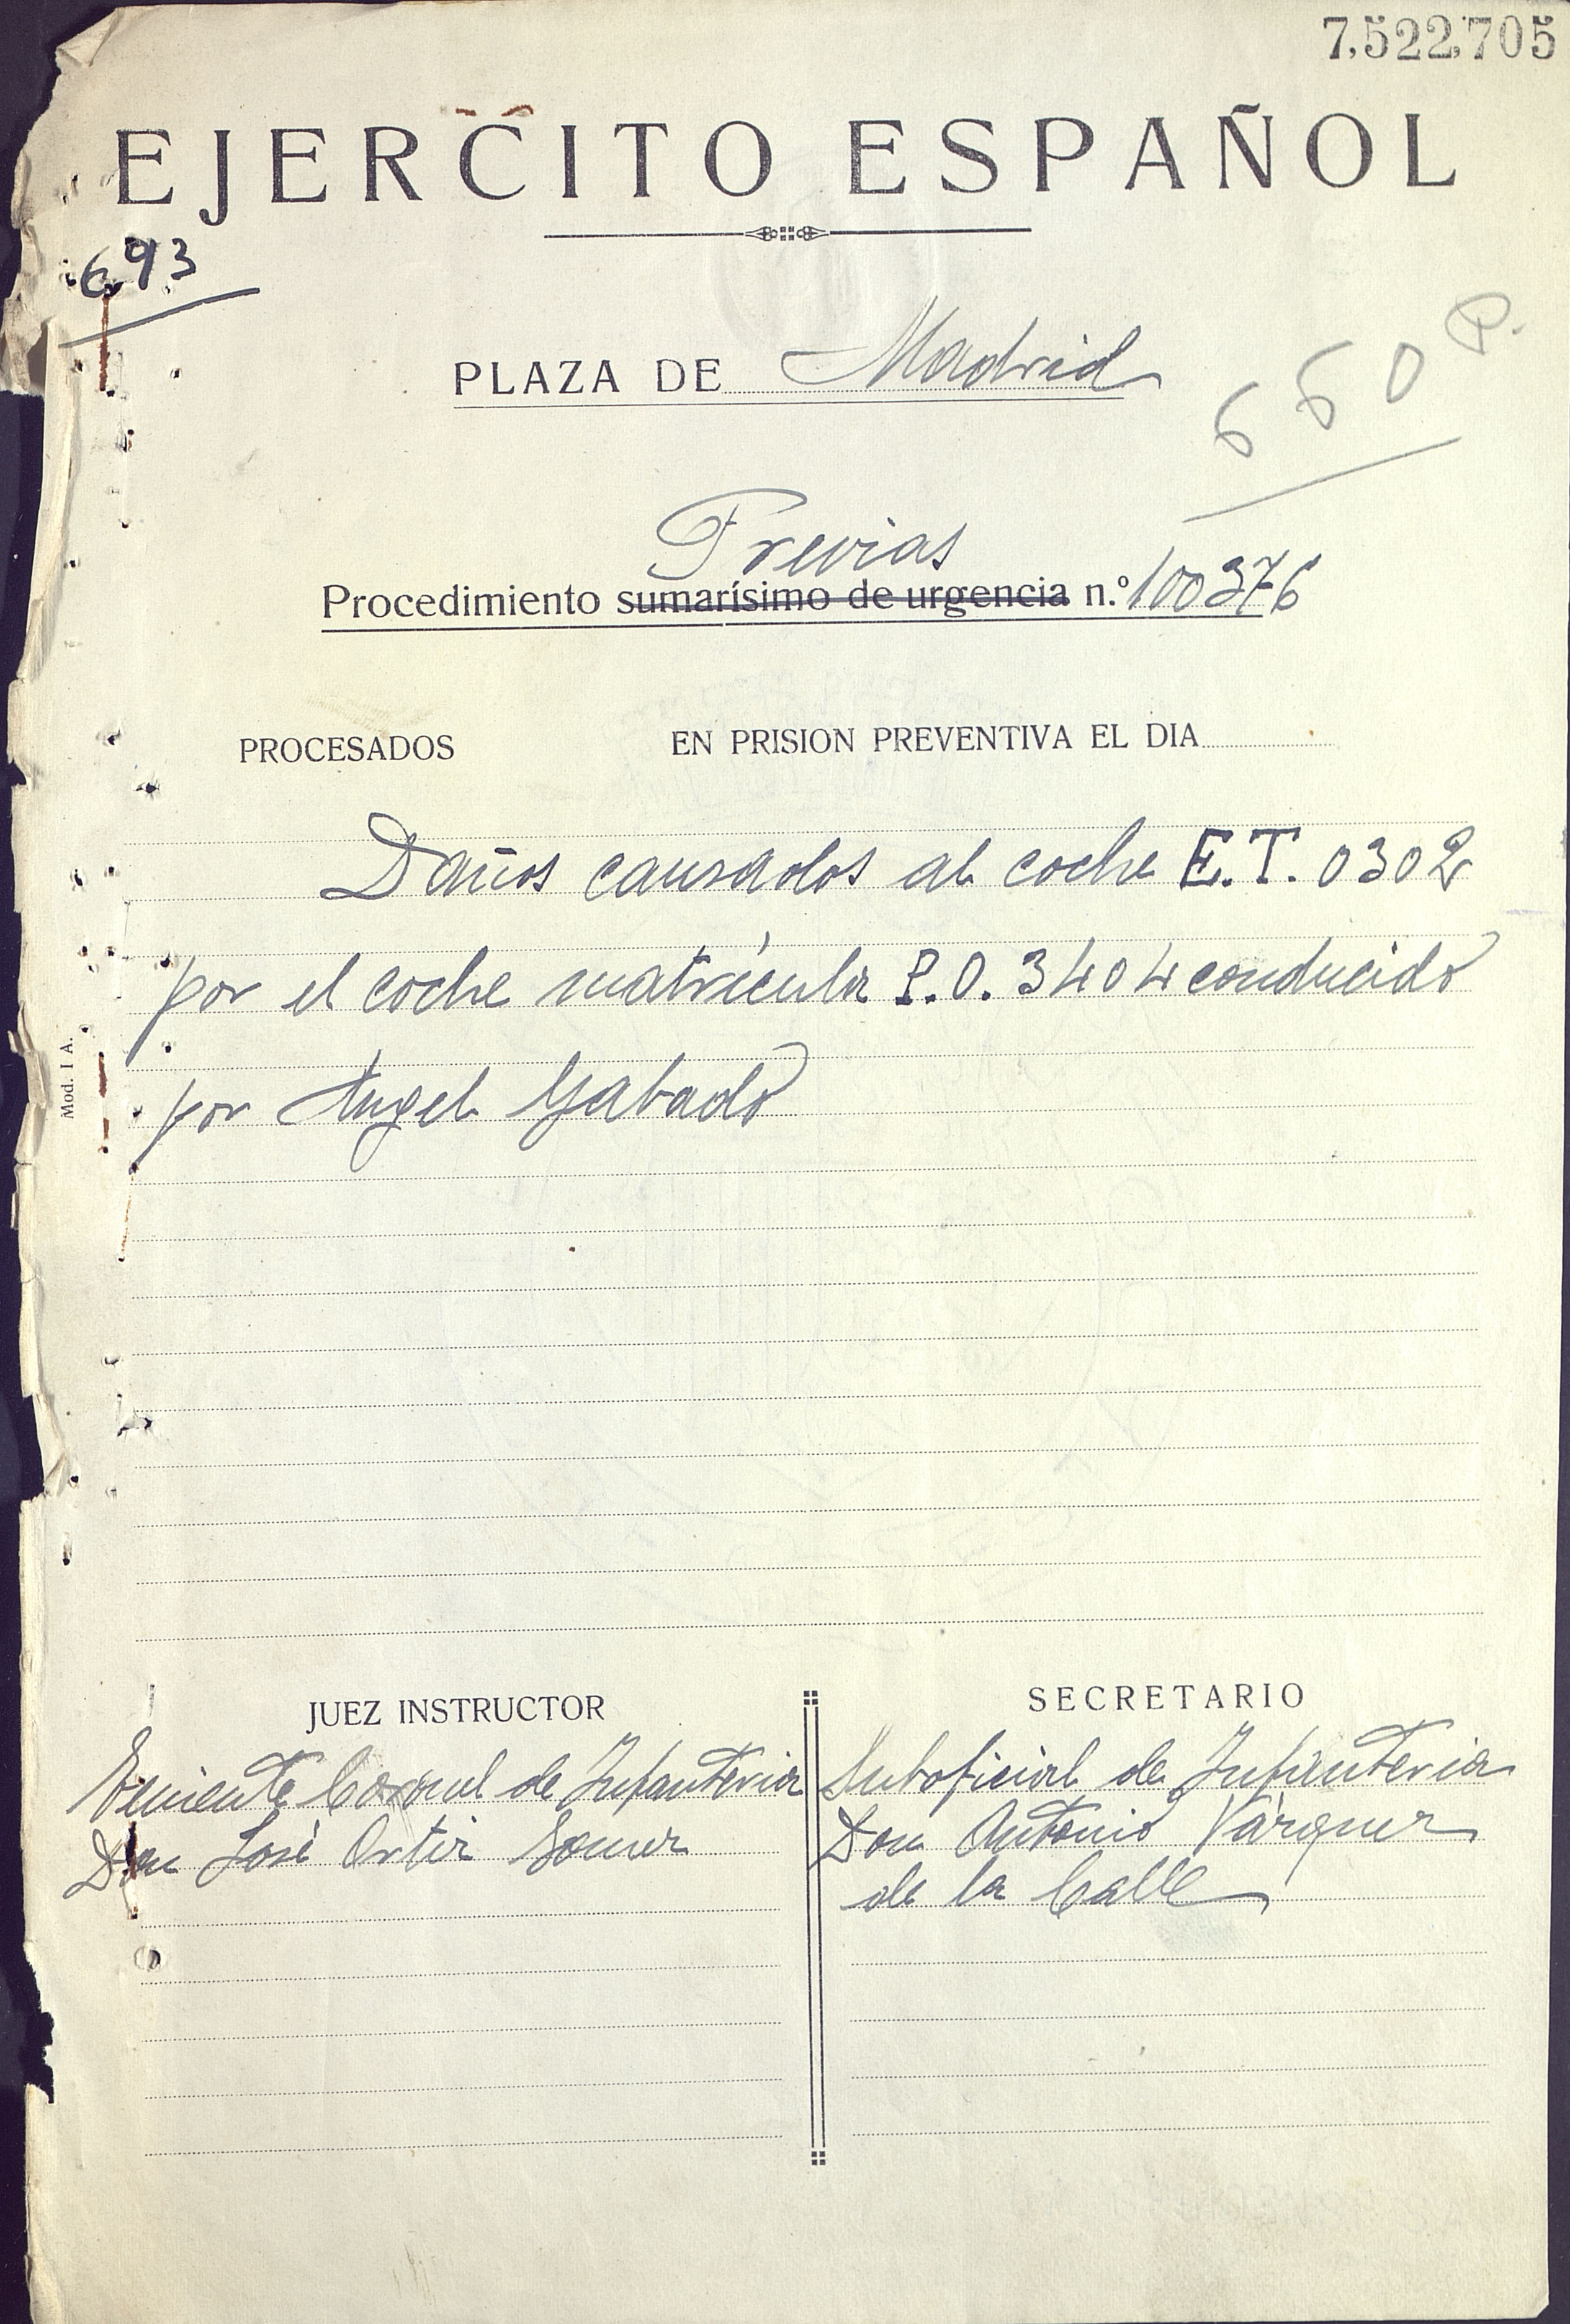 7,522,705
EJERCITO ESPAÑOL
693
PLAZA DE Madrid
660 P.
Previas
Procedimiento sumarísimo de urgencia n.º 100376
PROCESADOS EN PRISION PREVENTIVA EL DIA
Daños causados al coche E.T. 0302
por el coche matrícula P.O. 3404 conducido
por Angel Gabado
Mod. I A.
JUEZ INSTRUCTOR
Teniente Coronel de Infanteria
Don José Ortiz Gomez
SECRETARIO
Suboficial de Infanteria
Don Antonio Vázquez
de la Calle